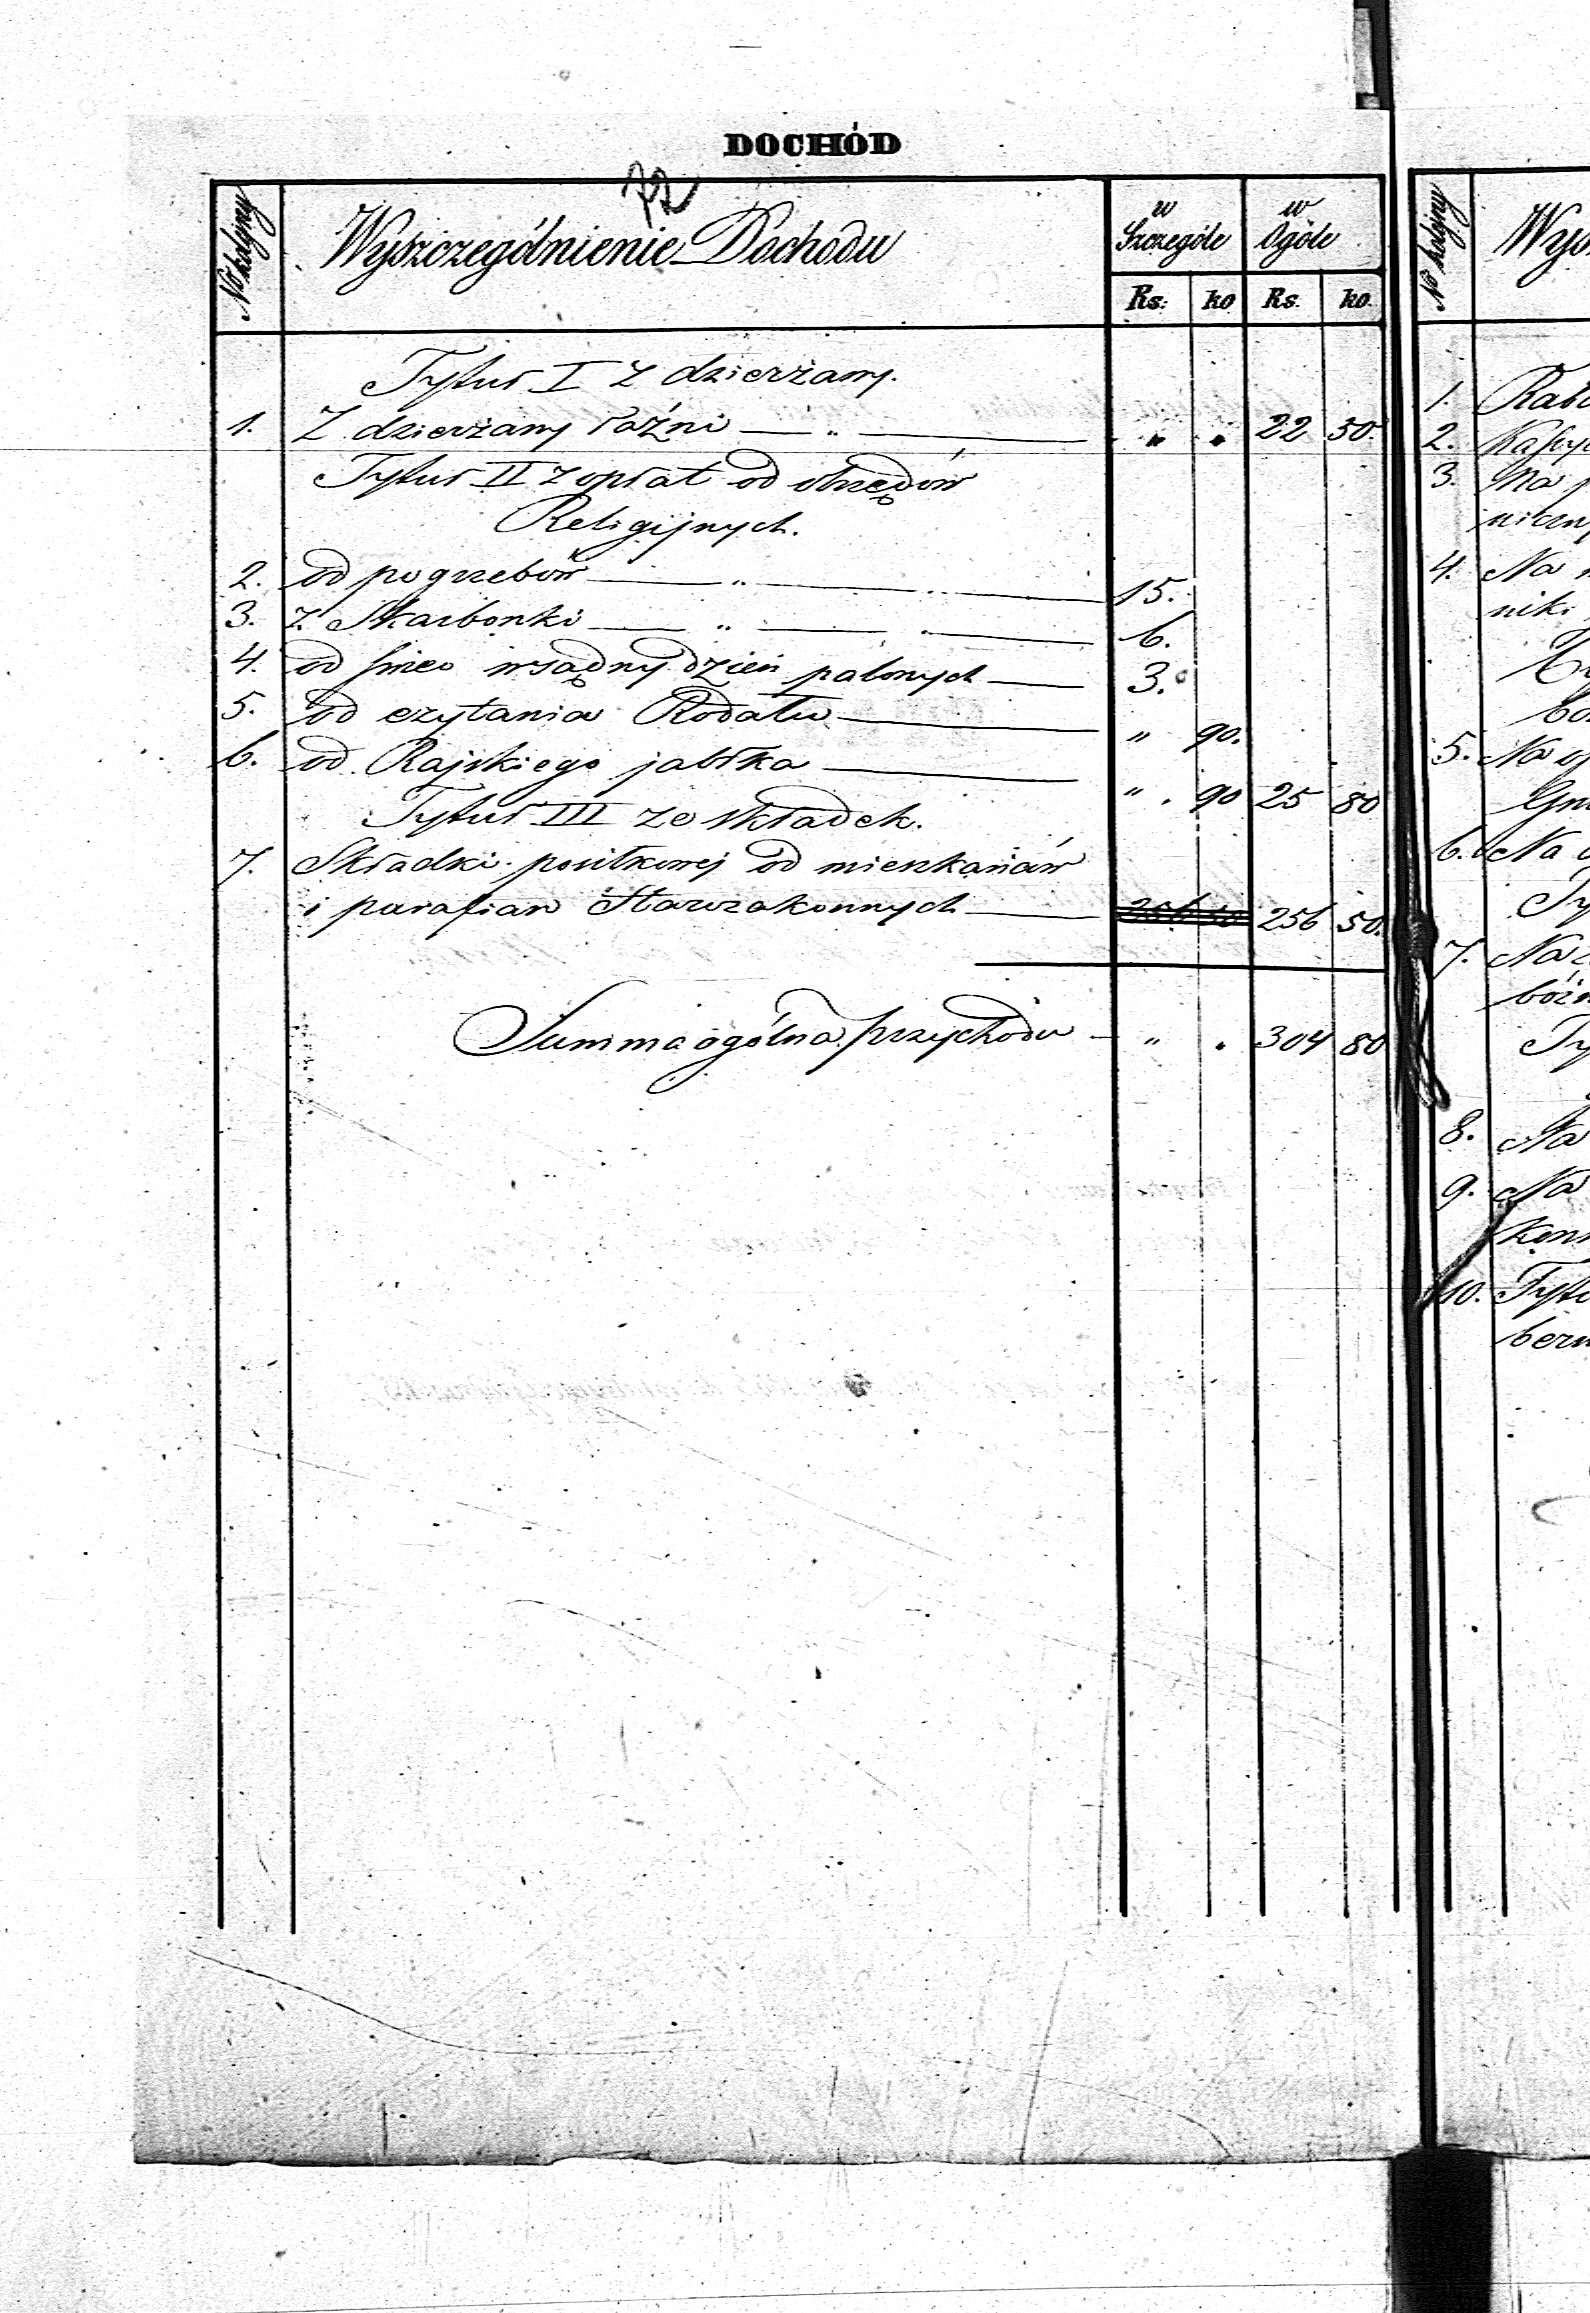 DOCHÓD
72
No kolejny
Wyszczególnienie Dochodu
w Szczególe
w Ogóle
Rs: ko Rs. ko.
Tytuł I Z dzierżawy.
1. Z dzierżawy łaźni — „ — „ . 22 50.
Tytuł II z opłat od obrzędów
Religijnych.
2. od pogrzebów — „ — „ — 15.
3. z Skarbonki — „ — „ — 6.
4. od świec w sądny dzień palonych — 3.
5. od czytania Rodału — „ 90.
6. od Rajskiego jabłka — „ . 90 25 80
Tytuł III ze składek.
7. Składki posiłkowej od mieszkańców
i parafian Starozakonnych — 256 50 256 50.
Summa ogólna przychodu — „ . 304 80
No kolejny
Wys
1.
2.
3. Na
4. Na
niki
5. Na
6. Na
7. Na
8. Na
9. Na
10.